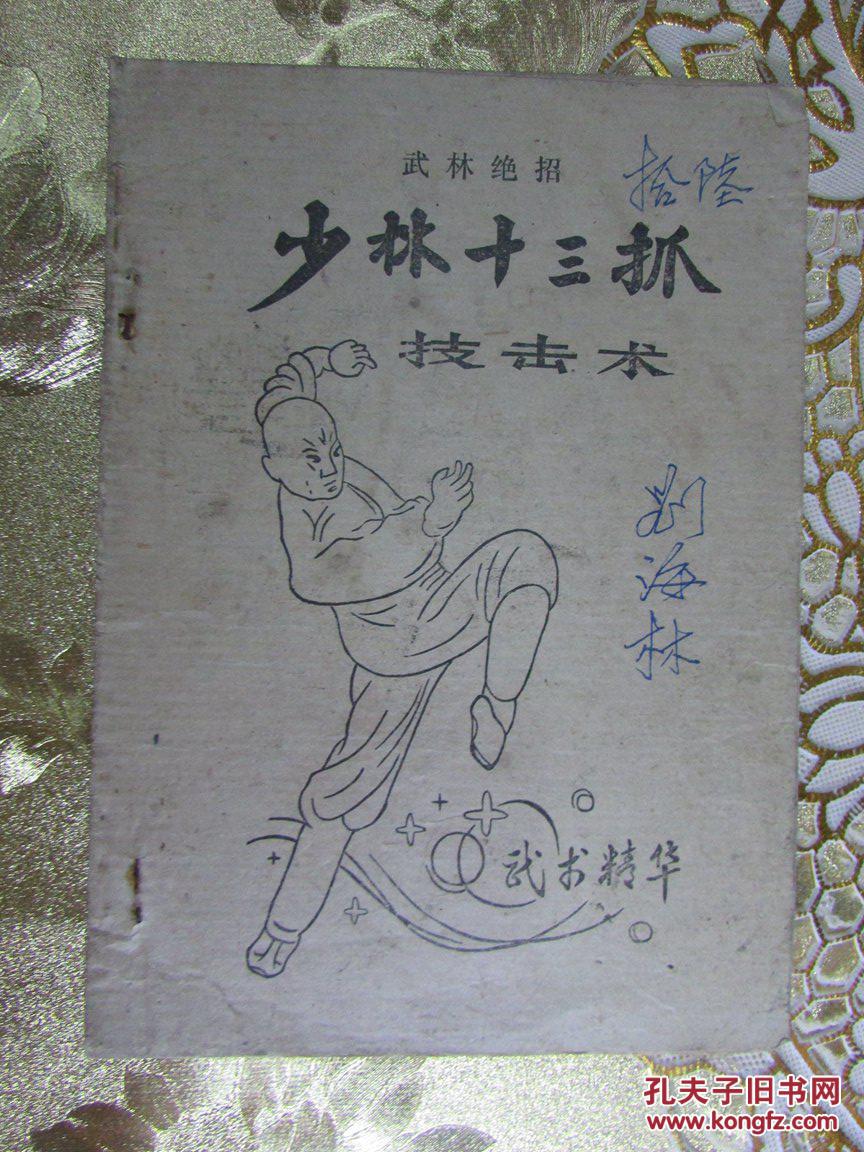 武林绝招
拾陆
少林十三抓
技击术
刘海林
武术精华
孔夫子旧书网
www.kongfz.com